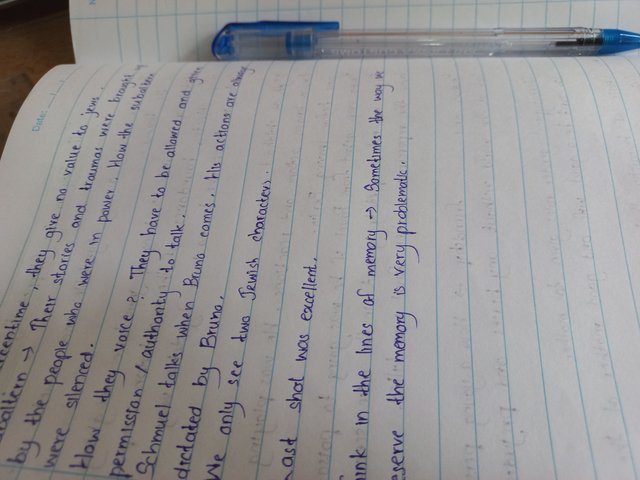 Date:
screentime, they give no value to jews.
subaltern → Their stories and traumas were brought up
by the people who were in power. How the subaltern
were silenced.
How they voice? They have to be allowed and given
permission / authority to talk.
Schmuel talks when Bruno comes. His actions are always
dictated by Bruno.
We only see two Jewish characters.
Last shot was excellent.
Think in the lines of memory → Sometimes the way we
preserve the memory is very problematic.